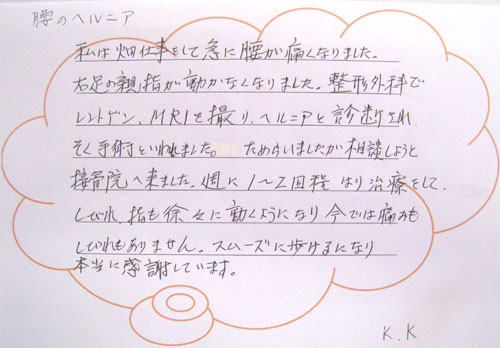 腰のヘルニア
私は畑仕事をして急に腰が痛くなりました。
右足の親指が動かなくなりました。整形外科で
レントゲン、MRIを撮り、ヘルニアと診断され
そく手術といわれました。 ためらいましたが相談しようと
接骨院へ来ました。週に1〜2回程 はり治療をして、
しびれ、指も徐々に動くようになり今では痛みも
しびれもありません。スムーズに歩けるになり
本当に感謝しています。
K.K